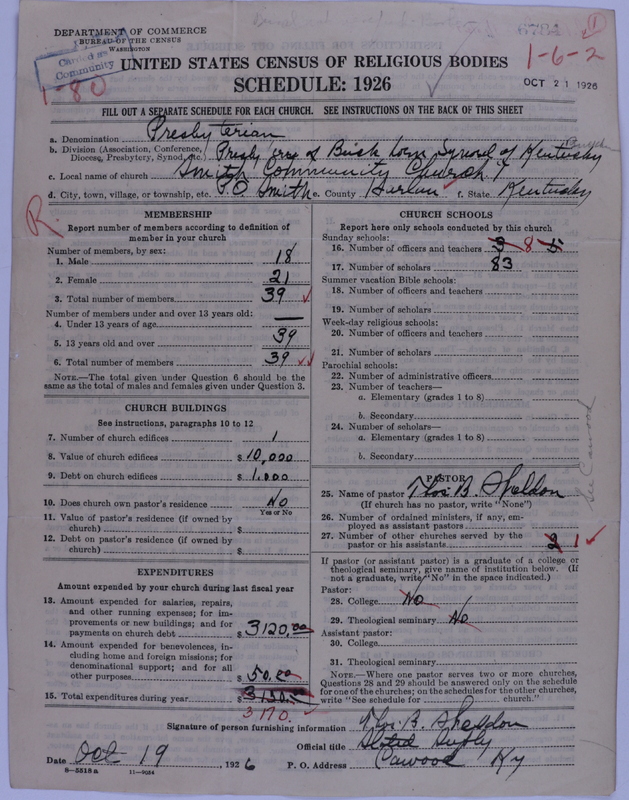 DEPARTMENT OF COMMERCE
BUREAU OF THE CENSUS
WASHINGTON
Carded as
Community
1-80
1-6-2
OCT 21 1926
UNITED STATES CENSUS OF RELIGIOUS BODIES
SCHEDULE: 1926
FILL OUT A SEPARATE SCHEDULE FOR EACH CHURCH. SEE INSTRUCTIONS ON THE BACK OF THIS SHEET
a. Denomination Presbyterian
b. Division (Association, Conference, Diocese, Presbytery, Synod, etc.) Presbytery of Buckhorn Synod of Kentucky
c. Local name of church Smith Community Church
d. City, town, village, or township, etc. P.O. Smith e. County Harlan f. State Kentucky
R
MEMBERSHIP
Report number of members according to definition of
member in your church
Number of members, by sex:
1. Male 18
2. Female 21
3. Total number of members 39
Number of members under and over 13 years old:
4. Under 13 years of age —
5. 13 years old and over 39
6. Total number of members 39
NOTE.—The total given under Question 6 should be the
same as the total of males and females given under Question 3.
CHURCH BUILDINGS
See instructions, paragraphs 10 to 12
7. Number of church edifices 1
8. Value of church edifices $ 10,000
9. Debt on church edifices $ 1,000
10. Does church own pastor's residence No
Yes or No
11. Value of pastor's residence (if owned by
church) $
12. Debt on pastor's residence (if owned by
church) $
EXPENDITURES
Amount expended by your church during last fiscal year
13. Amount expended for salaries, repairs,
and other running expenses; for im-
provements or new buildings; and for
payments on church debt $ 3120.00
14. Amount expended for benevolences, in-
cluding home and foreign missions; for
denominational support; and for all
other purposes $ 50.00
15. Total expenditures during year $
3170.
CHURCH SCHOOLS
Report here only schools conducted by this church
Sunday schools:
16. Number of officers and teachers 8
17. Number of scholars 83
Summer vacation Bible schools:
18. Number of officers and teachers
19. Number of scholars
Week-day religious schools:
20. Number of officers and teachers
21. Number of scholars
Parochial schools:
22. Number of administrative officers
23. Number of teachers—
a. Elementary (grades 1 to 8)
b. Secondary
24. Number of scholars—
a. Elementary (grades 1 to 8)
b. Secondary
See Cawood
PASTOR
25. Name of pastor Thos. B. Sheldon
(If church has no pastor, write "None")
26. Number of ordained ministers, if any, em-
ployed as assistant pastors
27. Number of other churches served by the
pastor or his assistants 2 1
If pastor (or assistant pastor) is a graduate of a college or
theological seminary, give name of institution below. (If
not a graduate, write "No" in the space indicated.)
Pastor:
28. College No
29. Theological seminary No
Assistant pastor:
30. College
31. Theological seminary
NOTE.—Where one pastor serves two or more churches,
Questions 28 and 29 should be answered only on the schedule
for one of the churches; on the schedules for the other churches,
write "See schedule for church."
Signature of person furnishing information Thos. B. Sheldon
Official title Stated Supply
Date Oct 19, 1926 P. O. Address Cawood Ky
8-5518a 11-9054